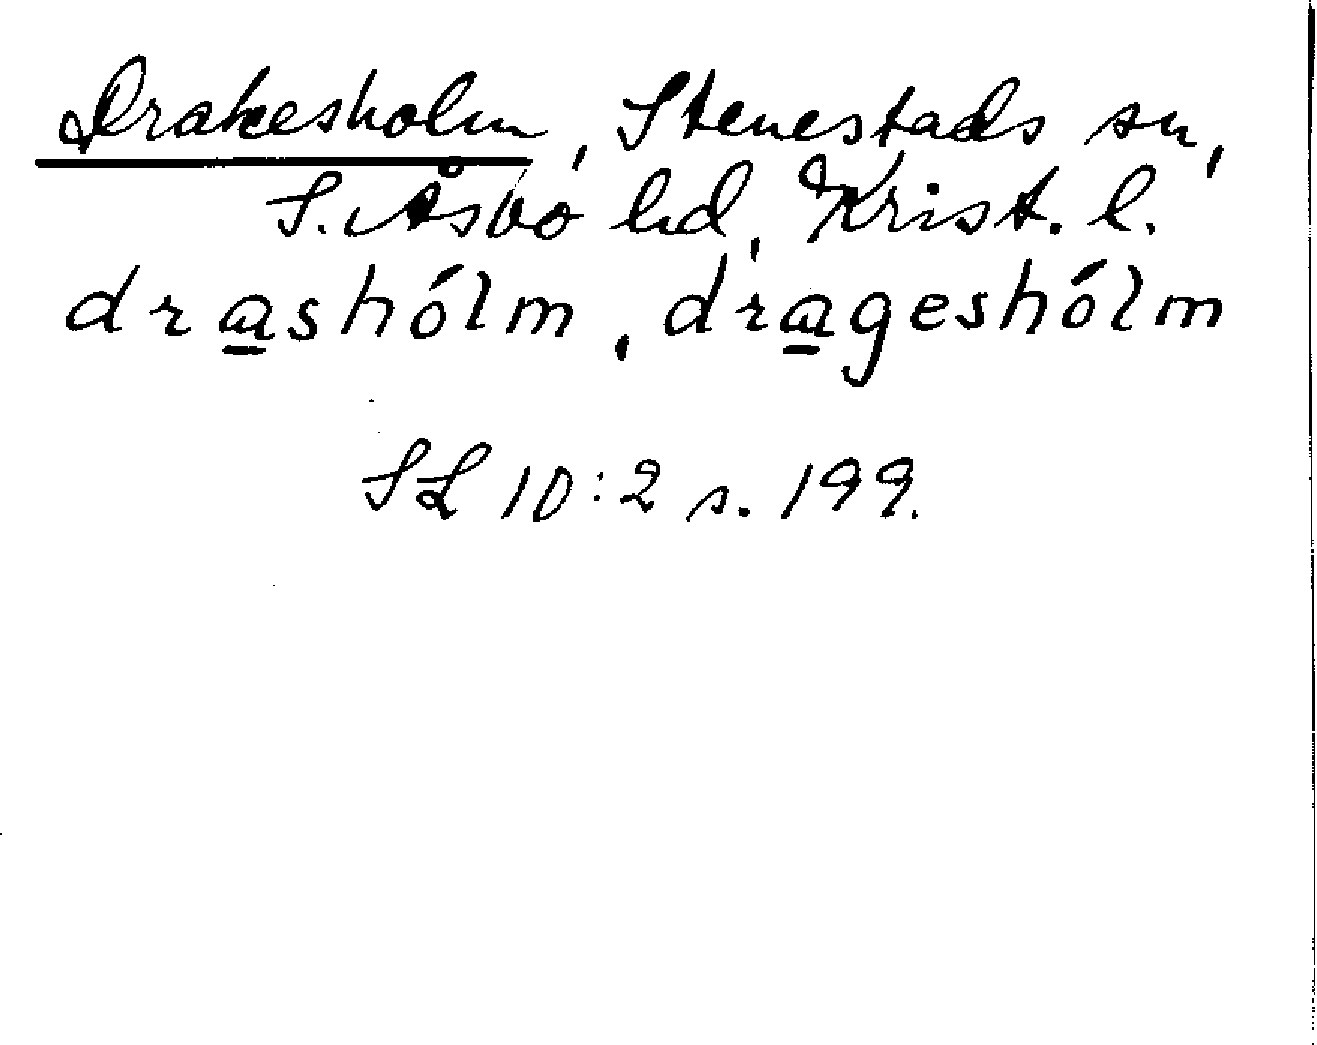 Drakesholm, Stenestads sn,
S. Åsbo hd, Krist. l.
dra̲shólm, dra̲geshólm
SL 10:2 s. 199.